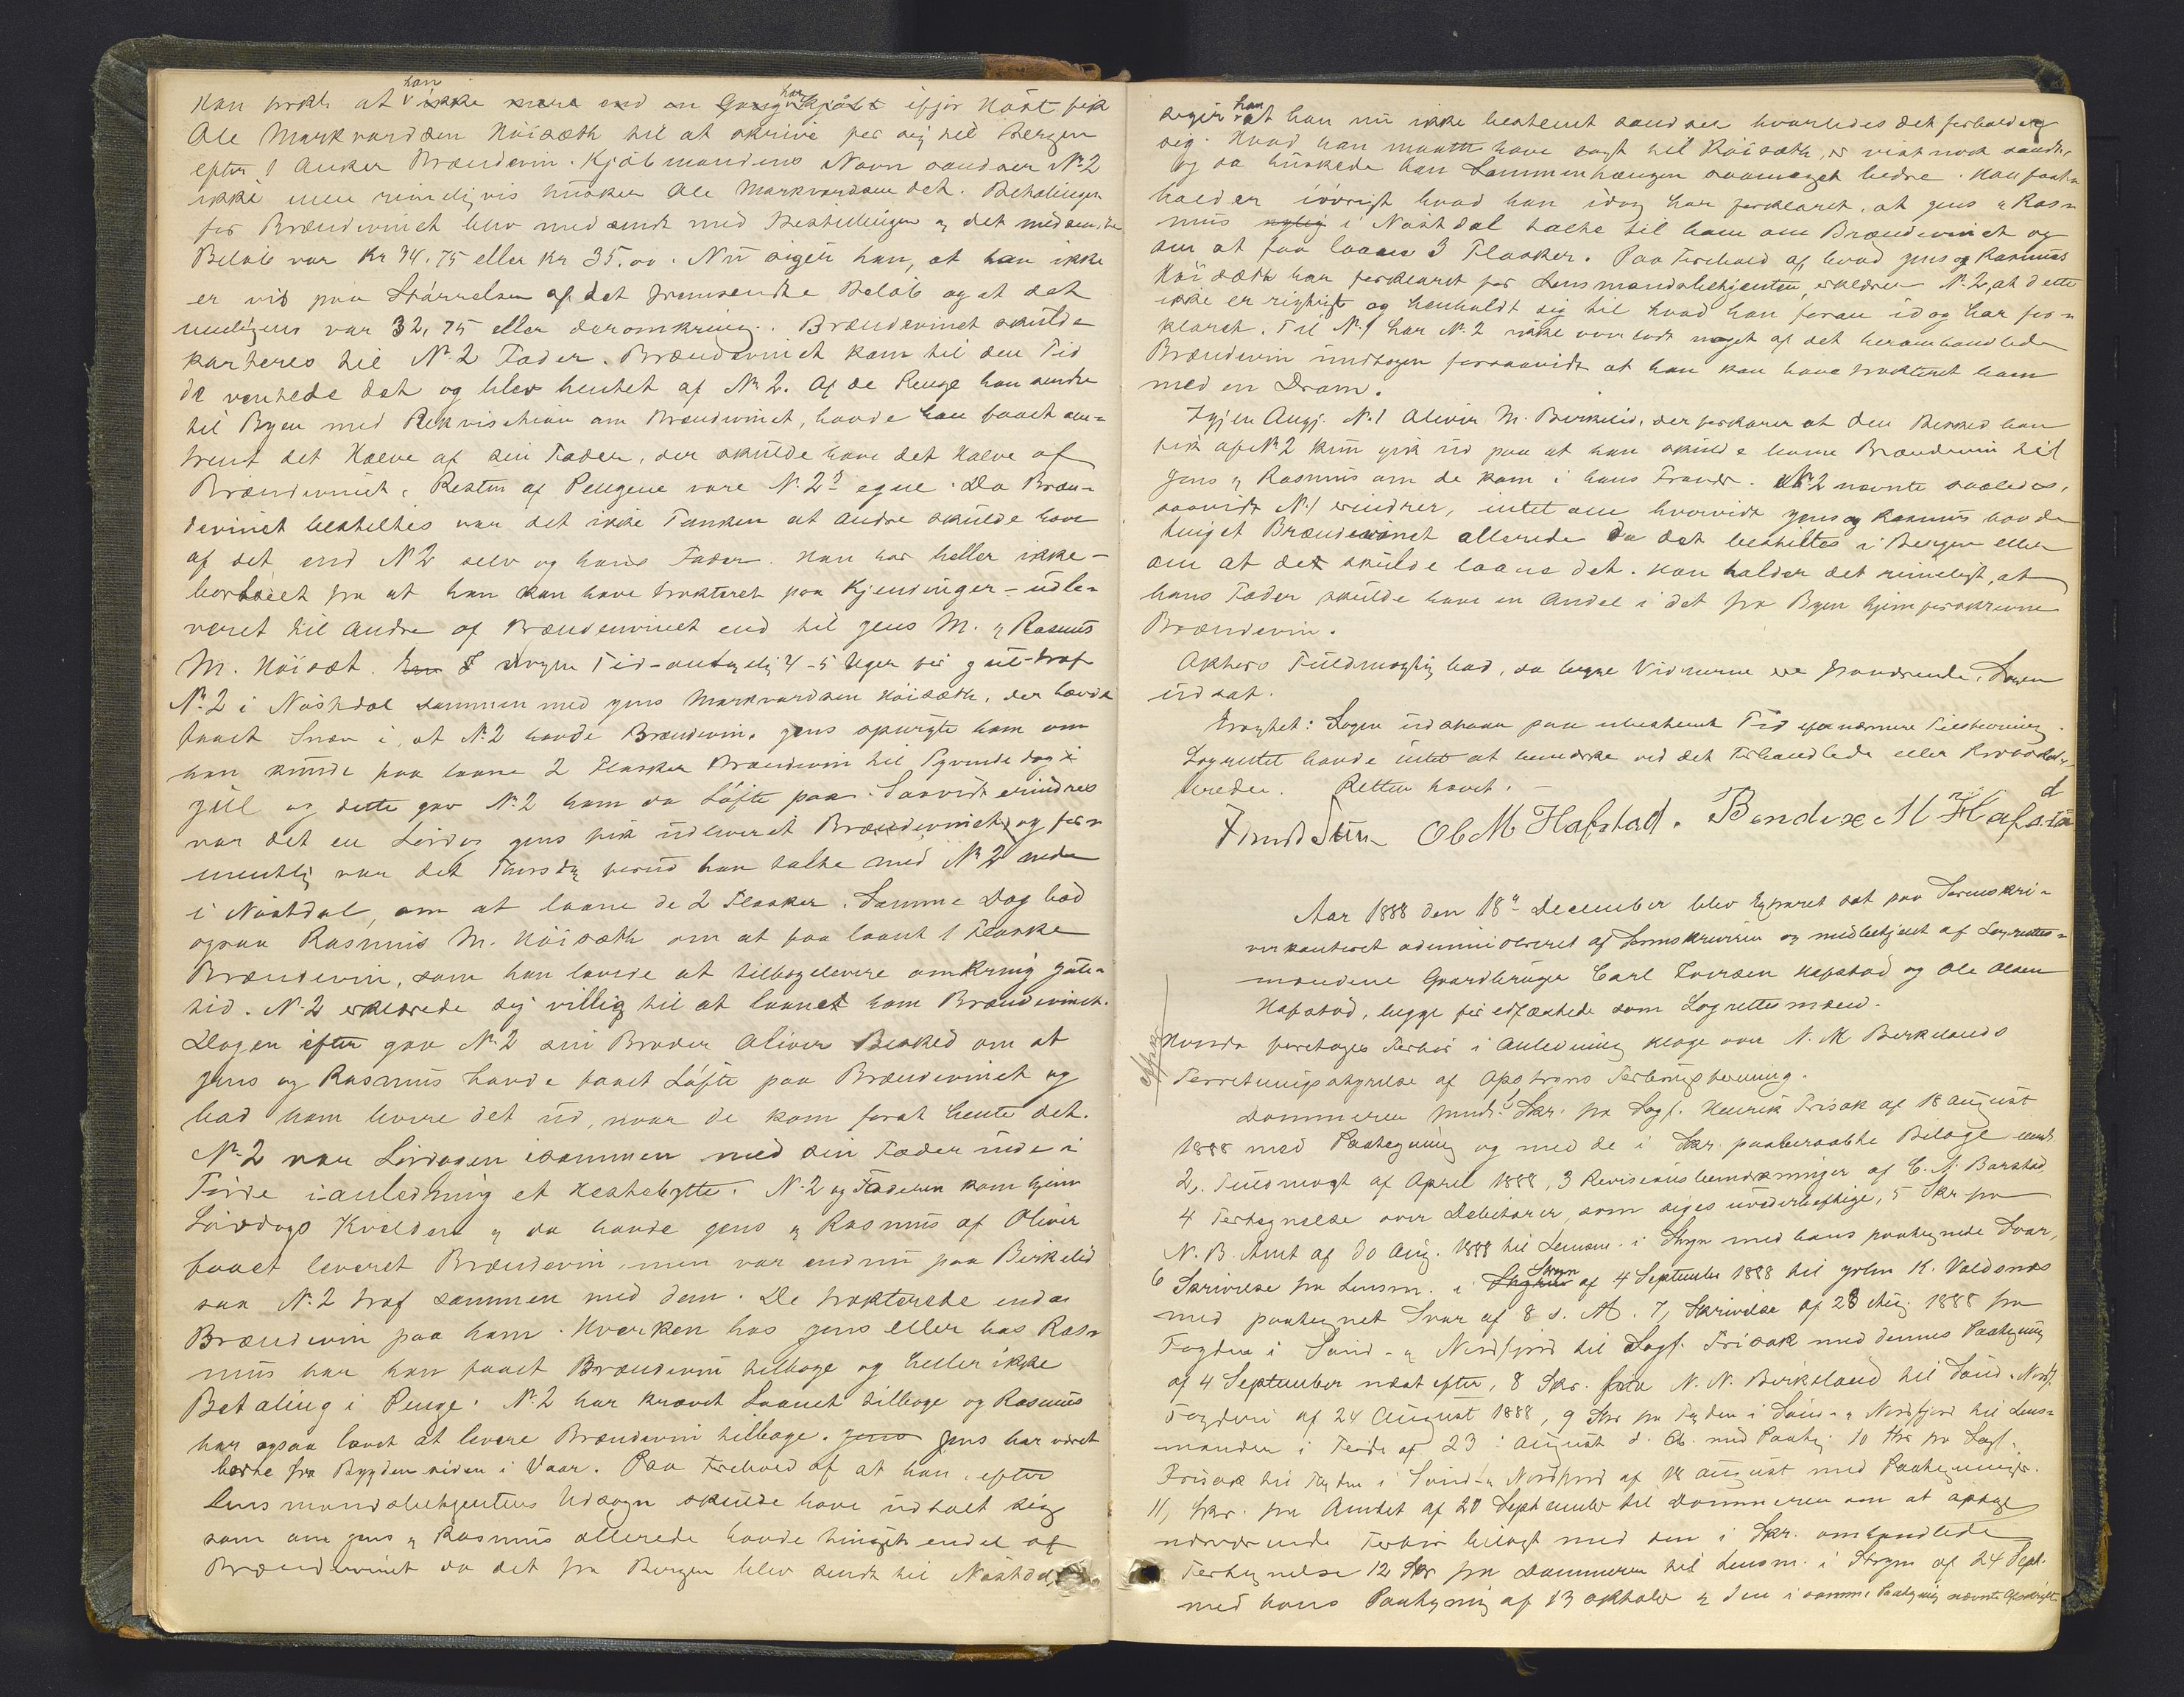 han
Han  at ikke mere end en Gang har kjøbt ifjor Høst fik
Ole Markvardsen Høisæth til at skrive for sig til Bergen
efter 1 Anker Brændevin. Kjøbmandens Navn sandser No 2
ikke men rimeligvis husker Ole Markvardsen det. Betalingen
for Brændevinet blev medsendt med Bestillingen og det medsendte
Beløb var Kr 34.75 eller Kr 35.00. Nu siger han, at han ikke
er vis paa Størrelsen af det fremsendte Beløb og at det
muligens var 32,75 eller deromkring. Brændevinet skulde
karteres til No 2 Fader. Brændevinet kom til den Tid
de ventede det og blev hentet af No 2. Af de Penge han sendte
til Byen med Rekvisition om Brændevinet, havde han faaet om=
trent det Halve af sin Fader, der skulde have det Halve af
Brændevinet. Resten af Pengene vare No 2s egne. Da Bræn=
devinet bestiltes var det ikke Tanken at andre skulde have
af det end No 2 selv og hans Fader. Han har heller ikke –
bortseet fra at han kan have trakteret paa Kjendinger – udle=
veret til andre af Brændevinet end til Jens M. og Rasmus
M. Høisæt. I nogen Tid – antagelig 4-5 Uger før Jul – traf
No 2 i Nøstdal sammen med Jens Markvardsen Høisæth, der havde
faaet Snev i, at No 2 havde Brændevin. Jens spurgte ham om
han kunde faa laane 2 Flasker Brændevin til Tyvendedag i
Jul og dette gav No 2 ham da Løfte paa. Saavidt erindres
var det en Lørdag Jens fik udleveret Brændevinet, og for=
mentlig var det Thorsdag forud han talte med No 2 nede
i Nøstdal, om at laane de 2 Flasker. Samme Dag bad
ogsaa Rasmus M. Høisæth om at faa laant 1 Flaske
Brændevin, som han lovede at tilbagelevere omkring Jule=
tid. No 2 erklærede sig villig til at laanet ham Brændevinet.
Dagen efter gav No 2 sin Broder Oliver Besked om at
Jens og Rasmus havde faaet Løfte paa Brændevinet og
bad ham levere det ud, naar de kom forat hente det.
No 2 var Lørdagen isammen med sin Fader inde i
Førde i anledning et Hestebytte. No 2 og Faderen kom hjem
Lørdags Kvelden og da havde Jens og Rasmus af Oliver
faaet leveret Brændevin, men var endnu paa Birkelid
saa No 2 traf sammen med dem. De trakterede endog
Brændevin paa ham. Hverken hos Jens eller hos Ras=
mus har han faaet Brændevin tilbage og heller ikke
Betaling i Penge. No 2 har krævet Laanet tilbage og Rasmus
har ogsaa lovet at levere Brændevin tilbage. Jens Jens har været
borte fra Bygden siden i Vaar. Paa Forehold af at han, efter
Lensmandsbetjentens Udsagn skulde have udtalt sig
som om Jens og Rasmus allerede havde tinget endel af
Brændevinet da det fra Bergen blev sendt til Nøstdal,
siger han at han nu ikke bestemt sandser hvorledes det forholder
sig. Hvad han maatte have sagt til Høisæth, er vistnok sandt,
og da huskede han Sammenhængen saameget bedre. Han fast=
holder iøvrigt hvad han idag har forklaret, at Jens og Ras=
mus nylig i Nøstdal talte til ham om Brændevinet og
om at faa laane 3 Flasker. Paa Forehold af, hvad Jens og Rasmus
Høisæth har forklaret for Lensmandsbetjenten, erklærer No 2, at dette
ikke er rigtigt og henholdt sig til hvad han foran idag har for=
klaret. Til No 1 har No 2 ikke overladt noget af det heromhandlede
Brændevin undtagen forsaavidt at han kan have trakteret ham
med en Dram.
Igjen Angj. No 1 Oliver M. Birkelid, der forklarer at den Besked han
fik af No 2 kun gik ud paa at han skulde levere Brændevin til
Jens og Rasmus om de kom i hans Fravær. No 2 nævnte saaledes,
saavidt No 1 erindrer, intet om hvorvidt Jens og Rasmus havde
tinget Brændevinet allerede da det bestiltes i Bergen eller
om at de skulde laane det. Han holder det rimeligt, at
hans Fader skulde have en Andel i det fra Byen hjemforskrevne
Brændevin.
Aktors Fuldmægtig bad, da begge Vidnerne ere fraværende, Sagen
udsat.
Eragtet: Sagen udstaar paa ubestemt Tid efter nærmere Tilsigning.
Lagrettet havde intet at bemærke ved det Forhandlede eller
 Retten hævet. –
Ole M Hafstad. Bendix M Hafstad
Aar 1888 den 18de December blev Extraret sat paa Sorenskri=
verkontoret administreret af Sorenskriveren og medbetjent af Lagrettes=
mændene Gaardbruger Carl Iversen Hafstad og Ole Olsen
Hafstad, begge før edfæstede som Lagrettesmænd.
Hvorda foretages Forhør i Anledning Klage over N. M Birkelands
Forretningsstyrelse af
Dommeren freml. 1 Skr. fra Sagf. Henrik Frisak af 18 August
1888 med Paategning og med de i Skr. paaberaabte Bilage 
2, Fuldmagt af April 1888, 3 Revisionsbemærkninger af C. A. Barstad
4 Fortegnelse over Debitorer, som siges uvederheftige, 5 Skr. fra
N. B. Amt af 30 Aug. 1888 til Lensm. i Stryn med hans paategnede Svar,
6 Skrivelse fra Lensm. i Stryn af 4 September 1888 til  K. Valdsnæs
med paategnet Svar af 8 s. M. 7, Skrivelse af 28 Aug. 1888 fra
Fogden i Sønd- og Nordfjord til Sagf. Frisak med dennes Paategning
af 4 September næst efter, 8 Skr. fra N. N. Birkeland til Sønd- Nordf.
Fogderi af 24 August 1888, 9 Skr fra Fogden i Sønd- og Nordfjord til Lens=
manden i Førde af 23 August d. A. med Paateg. 10 Skr fra Sagf.
Frisak til Fogden i Sønd- og Nordfjord af 18 August med Paategninger.
11, Skr. fra Amtet af 20 September til Dommeren om at optage
nærværende Forhør bilagt med den i Skr. omhandlede
Fortegnelse 12 Skr fra Dommeren til Lensm. i Stryn af 24 Sept.
med hans Paategning af 13 Oktober og den i samme Paategning nævnte Afskrift